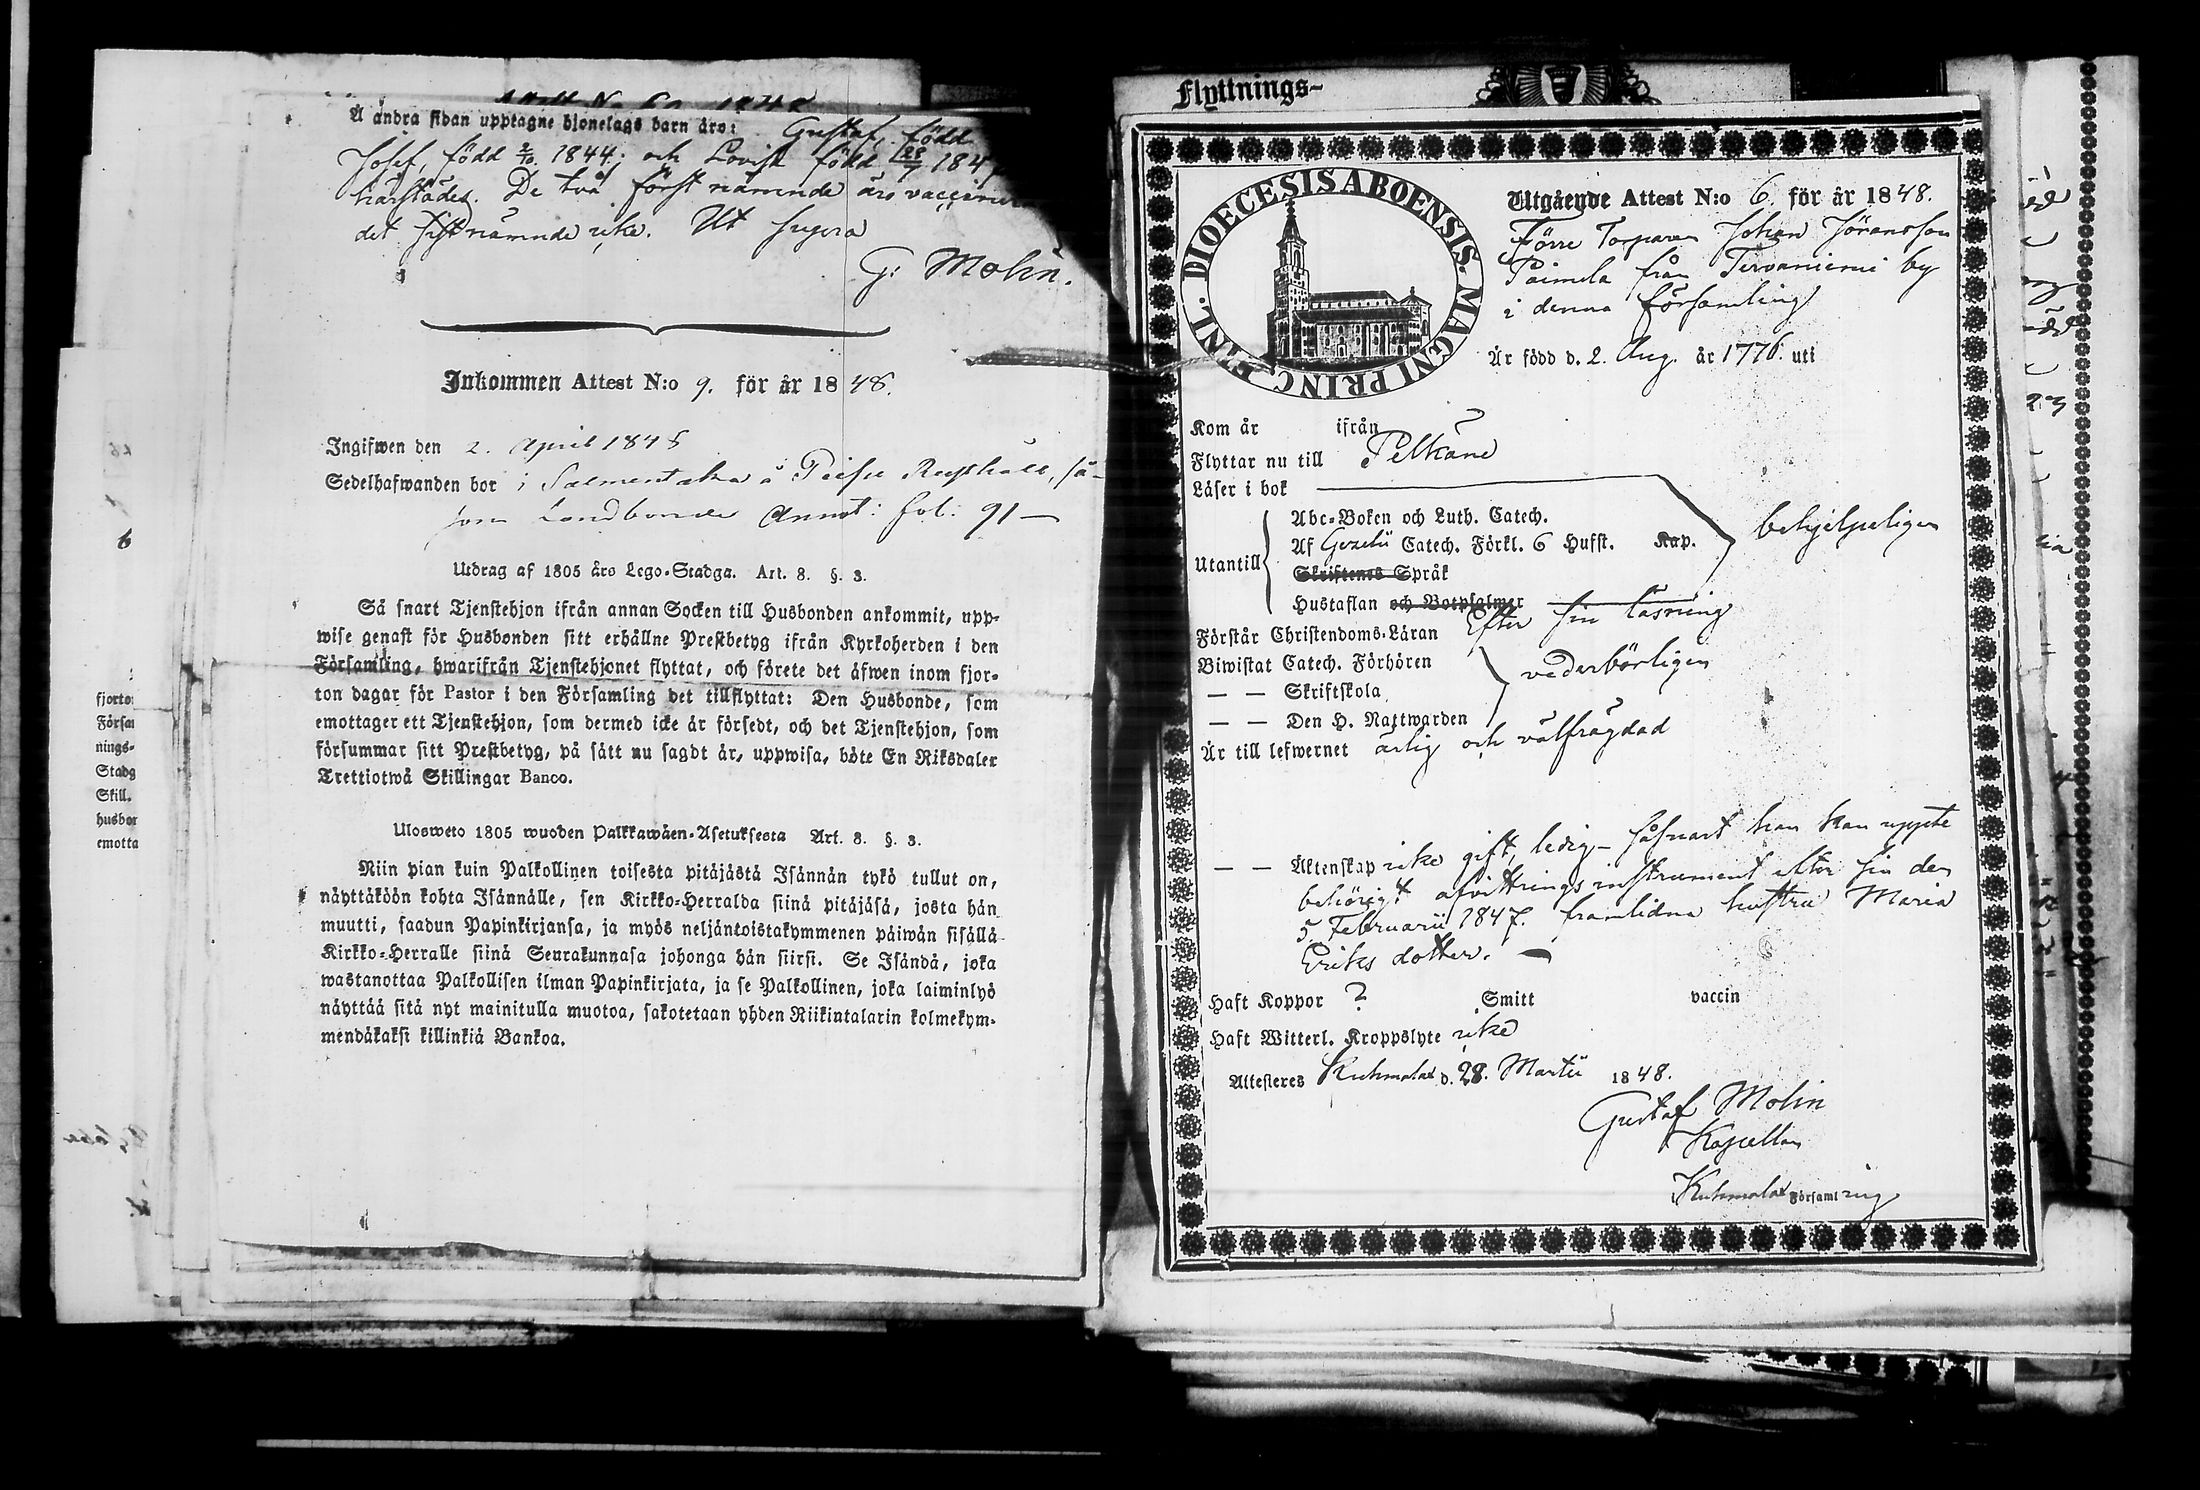 Å andra sidan upptagne hjonelags barn äro: Gustaf, född
Josef, född 2/10 1844; och Lovisa född 28/7 184
härstädes. De två först nämnde äro vaccinera
det sistnämnde icke. Ut supra
G: Molin.
Inkommen Attest N:o 9. för år 1848.
Ingifwen den 2. April 1848
Sedelhafwanden bor i Salmentaka å Rusthåll, så-
som Landbonde Annot: fol: 91 —
Utdrag af 1805 års Lego-Stadga. Art. 8. §. 3.
Så snart Tjenstehjon ifrån annan Socken till Husbonden ankommit, upp-
wise genast för Husbonden sitt erhållne Prestbetyg ifrån Kyrkoherden i den
Församling, hwarifrån Tjenstehjonet flyttat, och förete det äfwen inom fjor-
ton dagar för Pastor i den Församling det tillflyttat: Den Husbonde, som
emottager ett Tjenstehjon, som dermed icke är försedt, och det Tjenstehjon, som
försummar sitt Prestbetyg, på sätt nu sagdt är, uppwisa, böte En Riksdaler
Trettiotwå Skillingar Banco.
Ulosweto 1805 wuoden Palkkawäen-Asetuksesta Art. 8. §. 3.
Niin pian kuin Palkollinen toisesta pitäjästä Isännän tykö tullut on,
näyttäköön kohta Isännälle, sen Kirkko-Herralda siinä pitäjäsä, josta hän
muutti, saadun Papinkirjansa, ja myös neljäntoistakymmenen päiwän sisällä
Kirkko-Herralle siinä Seurakunnasa johonga hän siirsi. Se Isändä, joka
wastanottaa Palkollisen ilman Papinkirjata, ja se Palkollinen, joka laiminlyö
näyttää sitä nyt mainitulla muotoa, sakotetaan yhden Riikintalarin kolmekym-
mendäkaksi killinkiä Bankoa.
fjorto
Försa
nings-
Stadg
Skill.
husbor
emotta
Flyttnings-
DIOECESIS ABOENSIS. MAGNI PRINC. FINL.
Utgående Attest N:o 6. för år 1848.
Förre Torparen Johan Göransson
Paimela från Tervaniemi by
i denna församling
Är född d. 2. Aug. år 1776. uti
Kom år ifrån
Flyttar nu till Pelkäne
Läser i bok
Utantill
Abc-Boken och Luth. Catech.
Af Gezelii Catech. Förkl. 6 Hufst. Kap. behjelpeligen
Skriftenes Språk
Hustaflan och Botpsalmer
Förstår Christendoms-Läran Efter sin läsning
Biwistat Catech. Förhören
— — Skriftskola vederbörligen
— — Den H. Nattwarden
Är till lefwernet ärlig och välfrägdad
— — Äktenskap icke gift, ledig — såsnart han kan uppte
behörigt afvittringsinstrument efter sin den
5 Februarii 1847. framlidna hustru Maria
Eriks dotter. —
Haft Koppor ? Smitt vaccin
Haft Witterl. Kroppslyte icke
Attesteres Kuhmalax d. 28. Martii 1848.
Gustaf Molin
Kapellan
Kuhmalax Församling